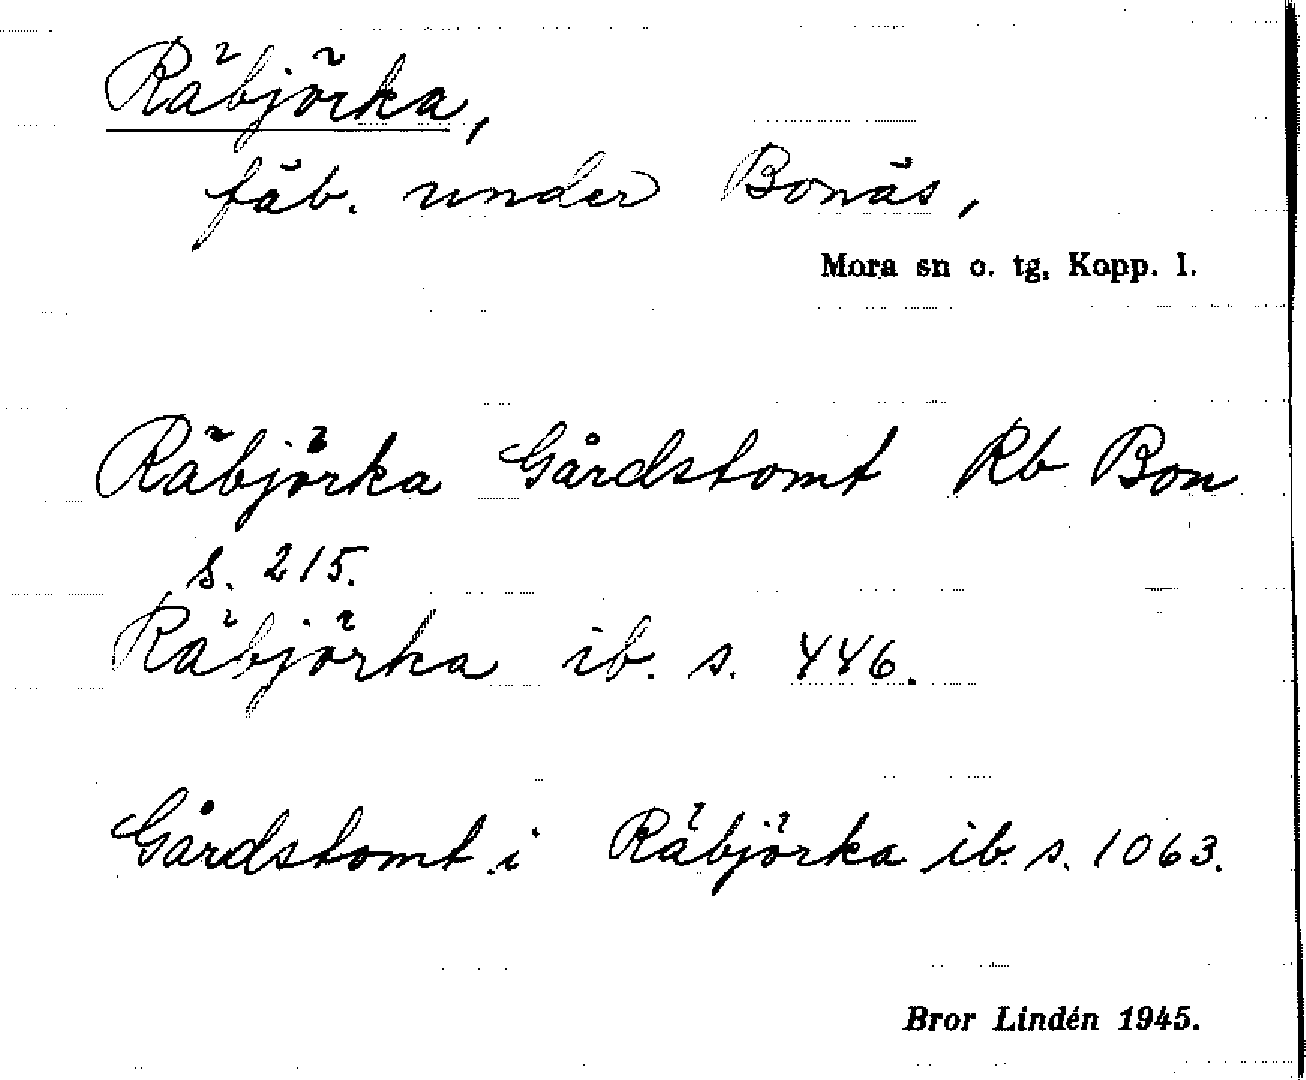 Räbjörka,
fäb. under Bonäs,
Mora sn o. tg, Kopp. l.
Räbjörka Gårdstomt Rb Bon
s. 215.
Räbjörka ib. s. 446.
Gårdstomt i Räbjörka ib. s. 1063.
Bror Lindén 1945.